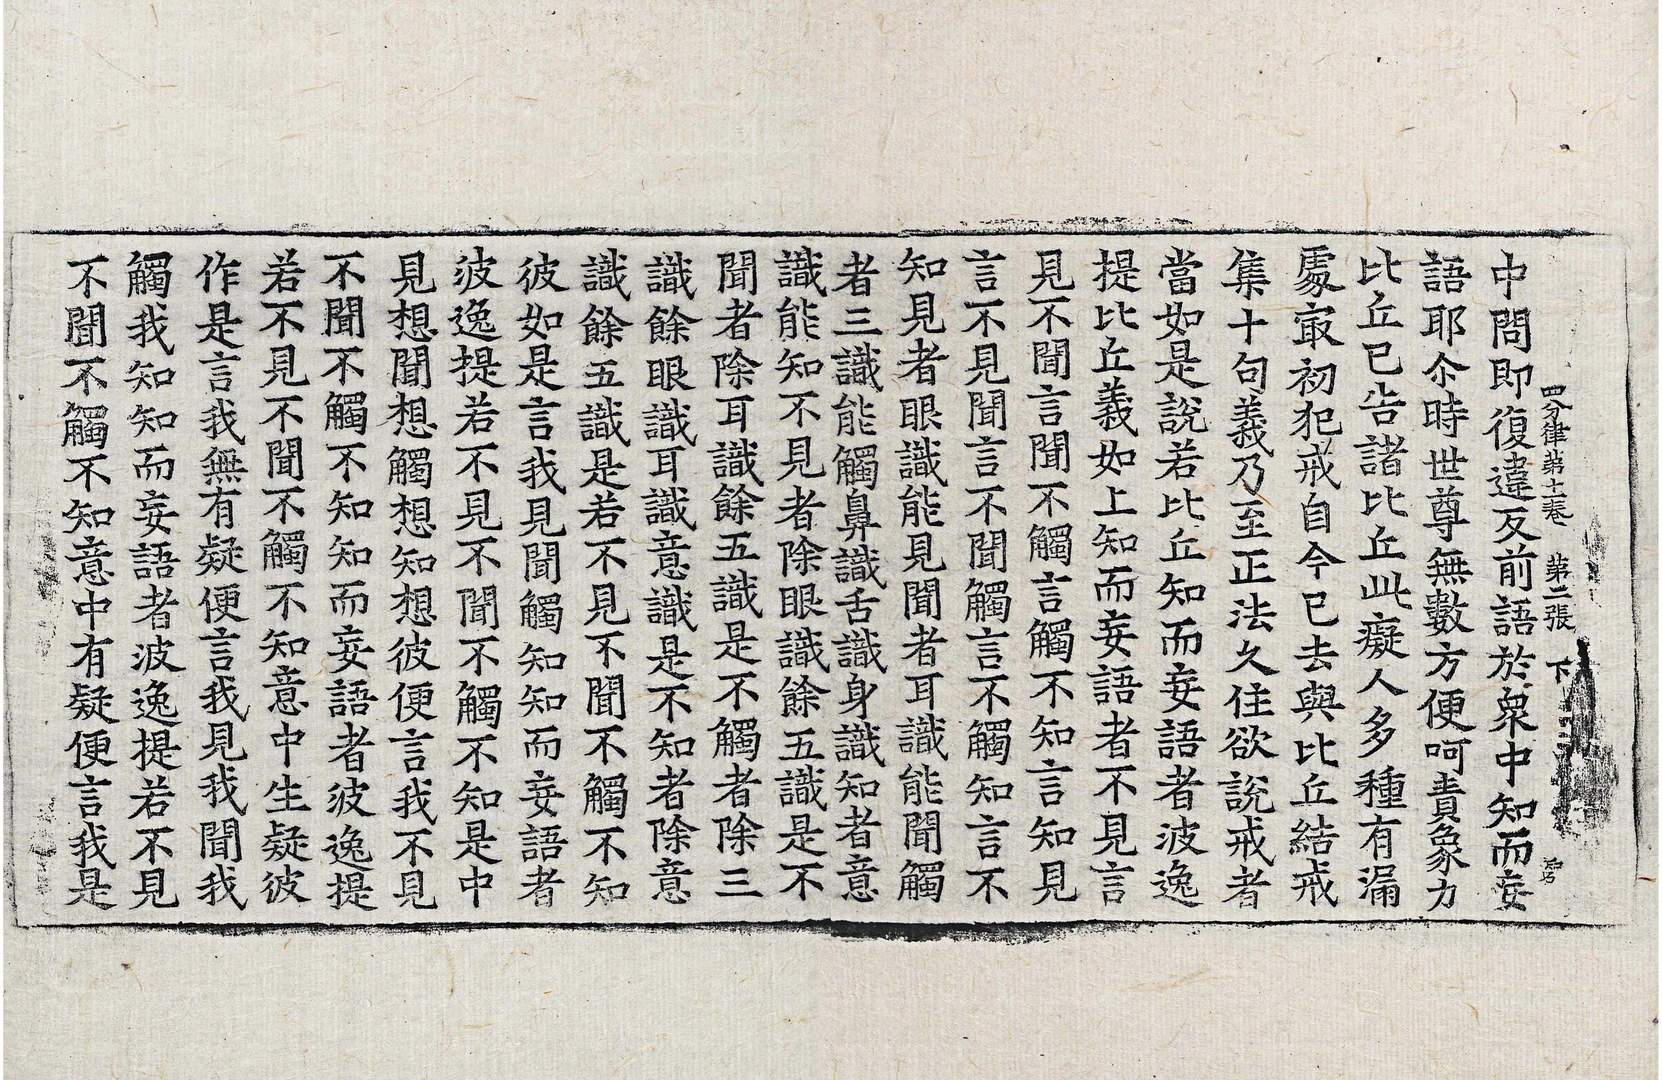 四分律第十一卷　第二張　下
中問即復違反前語於衆中知而妄
語耶尒時世尊無數方便呵責象力
比丘已告諸比丘此癡人多種有漏
處㝡初犯戒自今已去與比丘結戒
集十句義乃至正法久住欲說戒者
當如是說若比丘知而妄語者波逸
提比丘義如上知而妄語者不見言
見不聞言聞不觸言觸不知言知見
言不見聞言不聞觸言不觸知言不
知見者眼識能見聞者耳識能聞觸
者三識能觸鼻識舌識身識知者意
識能知不見者除眼識餘五識是不
聞者除耳識餘五識是不觸者除三
識餘眼識耳識意識是不知者除意
識餘五識是若不見不聞不觸不知
彼如是言我見聞觸知知而妄語者
波逸提若不見不聞不觸不知是中
見想聞想觸想知想彼便言我不見
不聞不觸不知知而妄語者波逸提
若不見不聞不觸不知意中生疑彼
作是言我無有疑便言我見我聞我
觸我知知而妄語者波逸提若不見
不聞不觸不知意中有疑便言我是